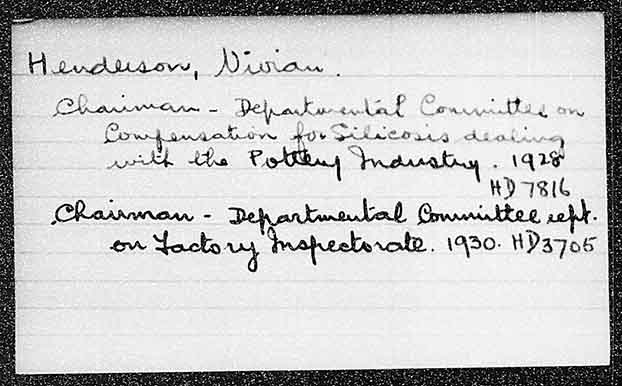 Henderson, Vivian.
Chairman - Departmental Committee on
Compensation for Silicosis dealing
with the Pottery Industry. 1928
HD 7816
Chairman - Departmental Committee rept.
on Factory Inspectorate. 1930. HD3705